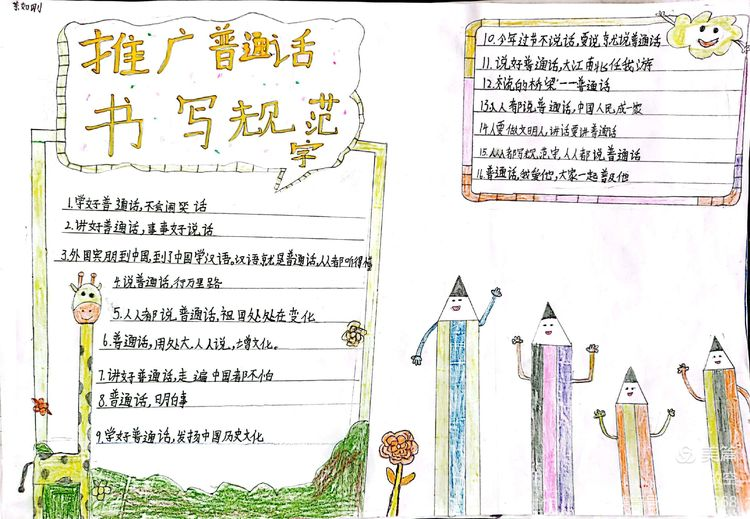 推广普通话
书写规范
字
1.学好普通话,不会闹笑话
2.讲好普通话,事事好说话
3.外国宾朋到中国,到了中国学汉语。汉语就是普通话,人人都听得懂
4.说普通话,行万里路
5.人人都说普通话,祖国处处在变化
6.普通话,用处大,人人说,增文化。
7.讲好普通话,走遍中国都不怕
8.普通话,明白事
9.学好普通话,发扬中国历史文化
10.今年过节不说话,要说就说普通话
11.说好普通话,大江南北任我游
12.交流的桥梁一一普通话
13.人人都说普通话,中国人民成一家
14.人要做文明人,讲话要讲普通话
15.人人都写规范字,人人都说普通话
16.普通话,我爱他,大家一起普及他
美篇